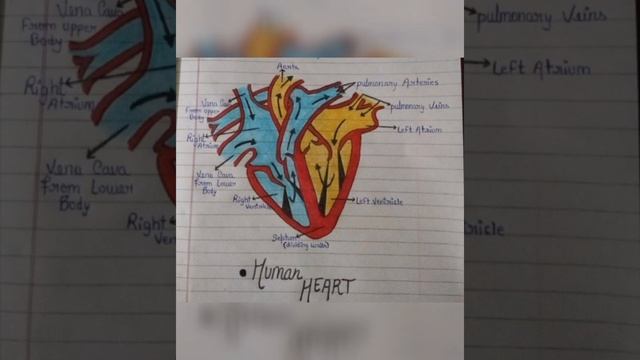 Vena Cava
From upper
Body
Right
Atrium
Vena Cava
From Lower
Body
Right
Aorta
pulmonary Arteries
Vena Cava
From upper
Body
pulmonary Veins
Left Atrium
Right
Atrium
Vena Cava
From Lower
Body
Right
Ventricle
Left Ventricle
Septum
Human
HEART
pulmonary Veins
Left Atrium